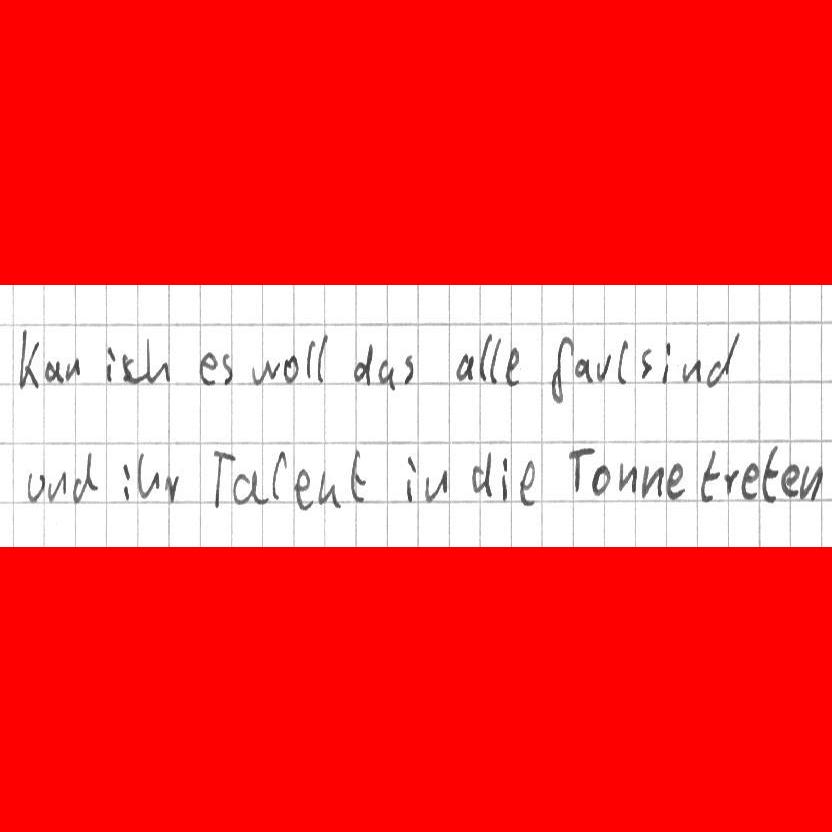 Kan ich es woll das alle faul sind
und ihr Talent in die Tonne treten